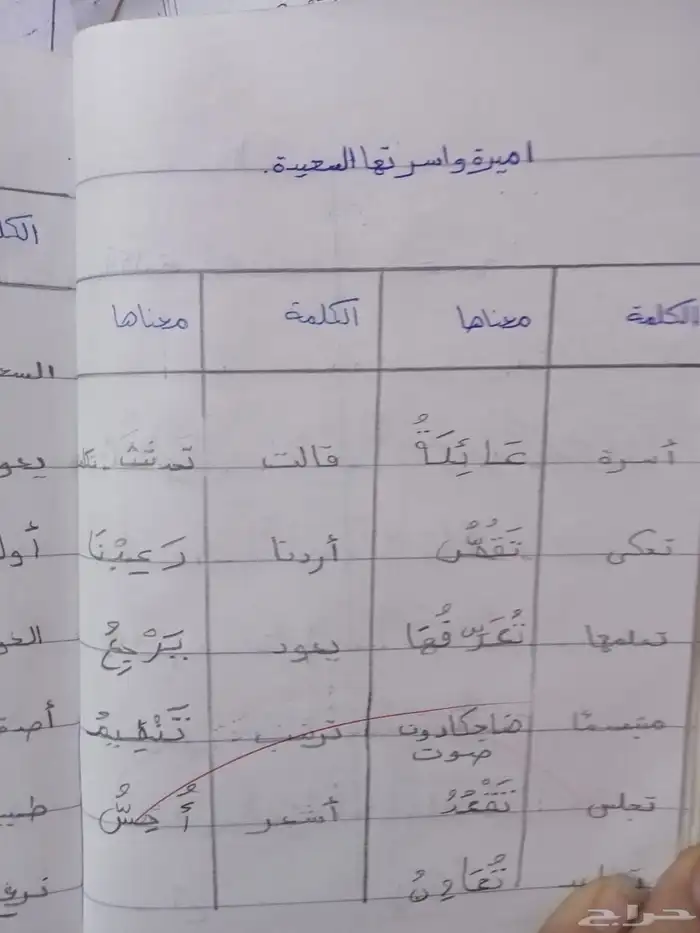 اميرة واسرتها السعيدة.
الكلمة معناها الكلمة معناها
أسرة عَائِلَةٌ قالت تحدثت
تحكى تَقُصُّ أردنا رَغِبْنَا
تعلمها تُعَرِّفُهَا يعود يَرْجِعُ
مبتسمًا ضاحكا دون صوت ترتيب تَنْظِيمُ
تجلس تَقْعُدُ أشعر أُحِسُّ
تُعَاوِنُ
حراج